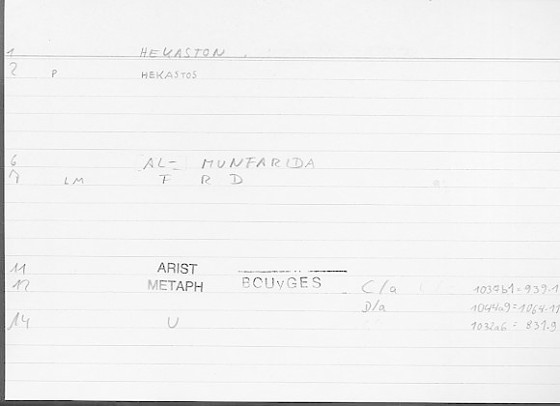 1 HEKASTON .
2 P HEKASTOS
6 AL- MUNFARIDA
7 LM F R D
11 ARIST
12 METAPH BOUYGES C/a 1037b1=939.1
D/a 1044a9=1064.11
14 U 1032a6 = 831.9